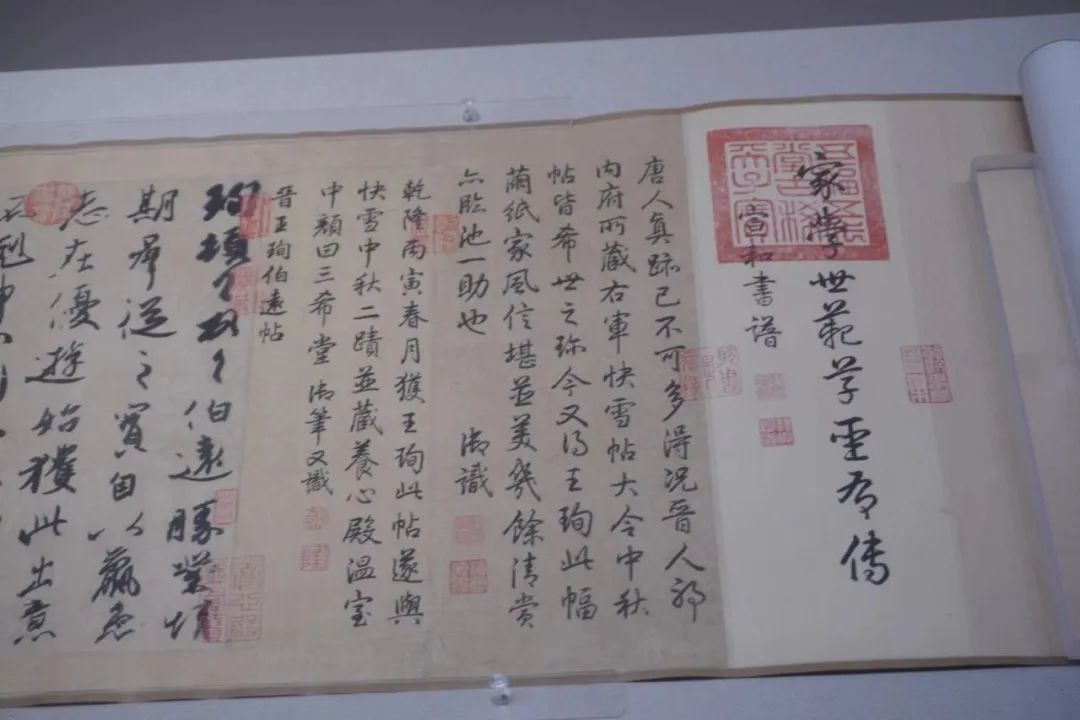 家學世範草聖有傳
宣和書譜
唐人真跡已不可多得況晉人耶
內府所藏右軍快雪帖大令中秋
帖皆希世之珍今又得王珣此幅
繭紙家風信堪並美幾餘清賞
亦臨池一助也 御識
乾隆丙寅春月獲王珣此帖遂與
快雪中秋二蹟並藏養心殿溫室
中顏曰三希堂 御筆又識
晉王珣伯遠帖
珣頓首頓首伯遠勝業情
期群從之寶自以羸患
志在優遊始獲此出意
不剋申